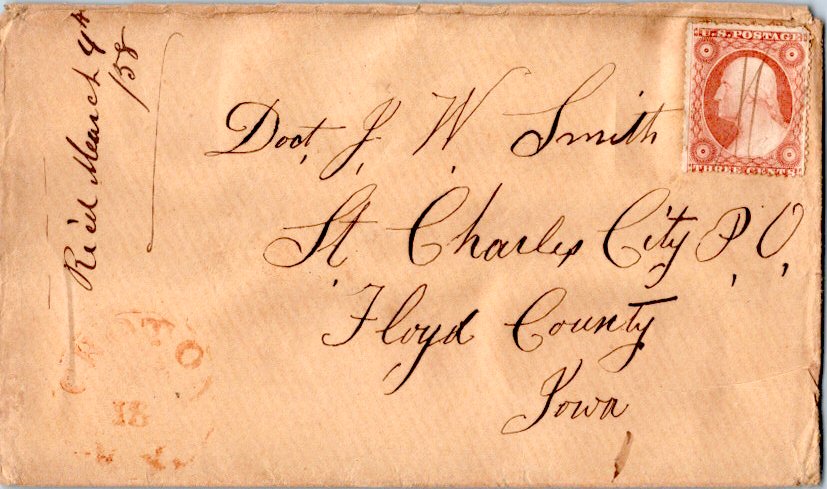 Rec'd March 4th
/58
U.S. POSTAGE
THREE CENTS
Doct, J, W, Smith
St Charles City P, O,
Floyd County
Iowa
18